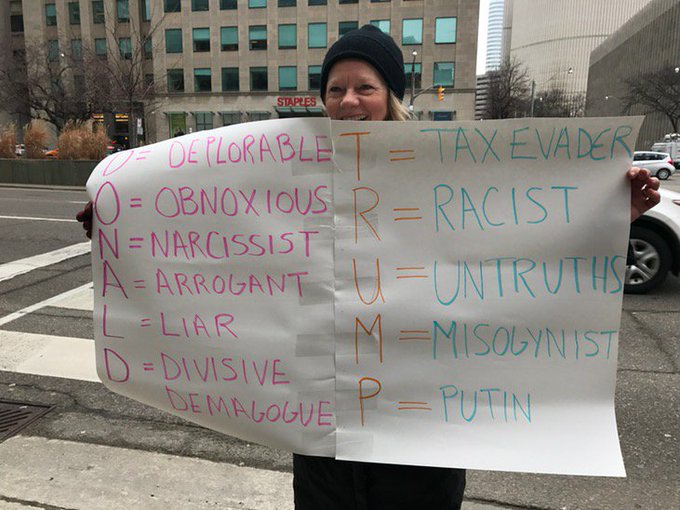 STAPLES
D = DEPLORABLE
O = OBNOXIOUS
N = NARCISSIST
A = ARROGANT
L = LIAR
D = DIVISIVE
DEMAGOGUE
T = TAX EVADER
R = RACIST
U = UNTRUTHS
M = MISOGYNIST
P = PUTIN